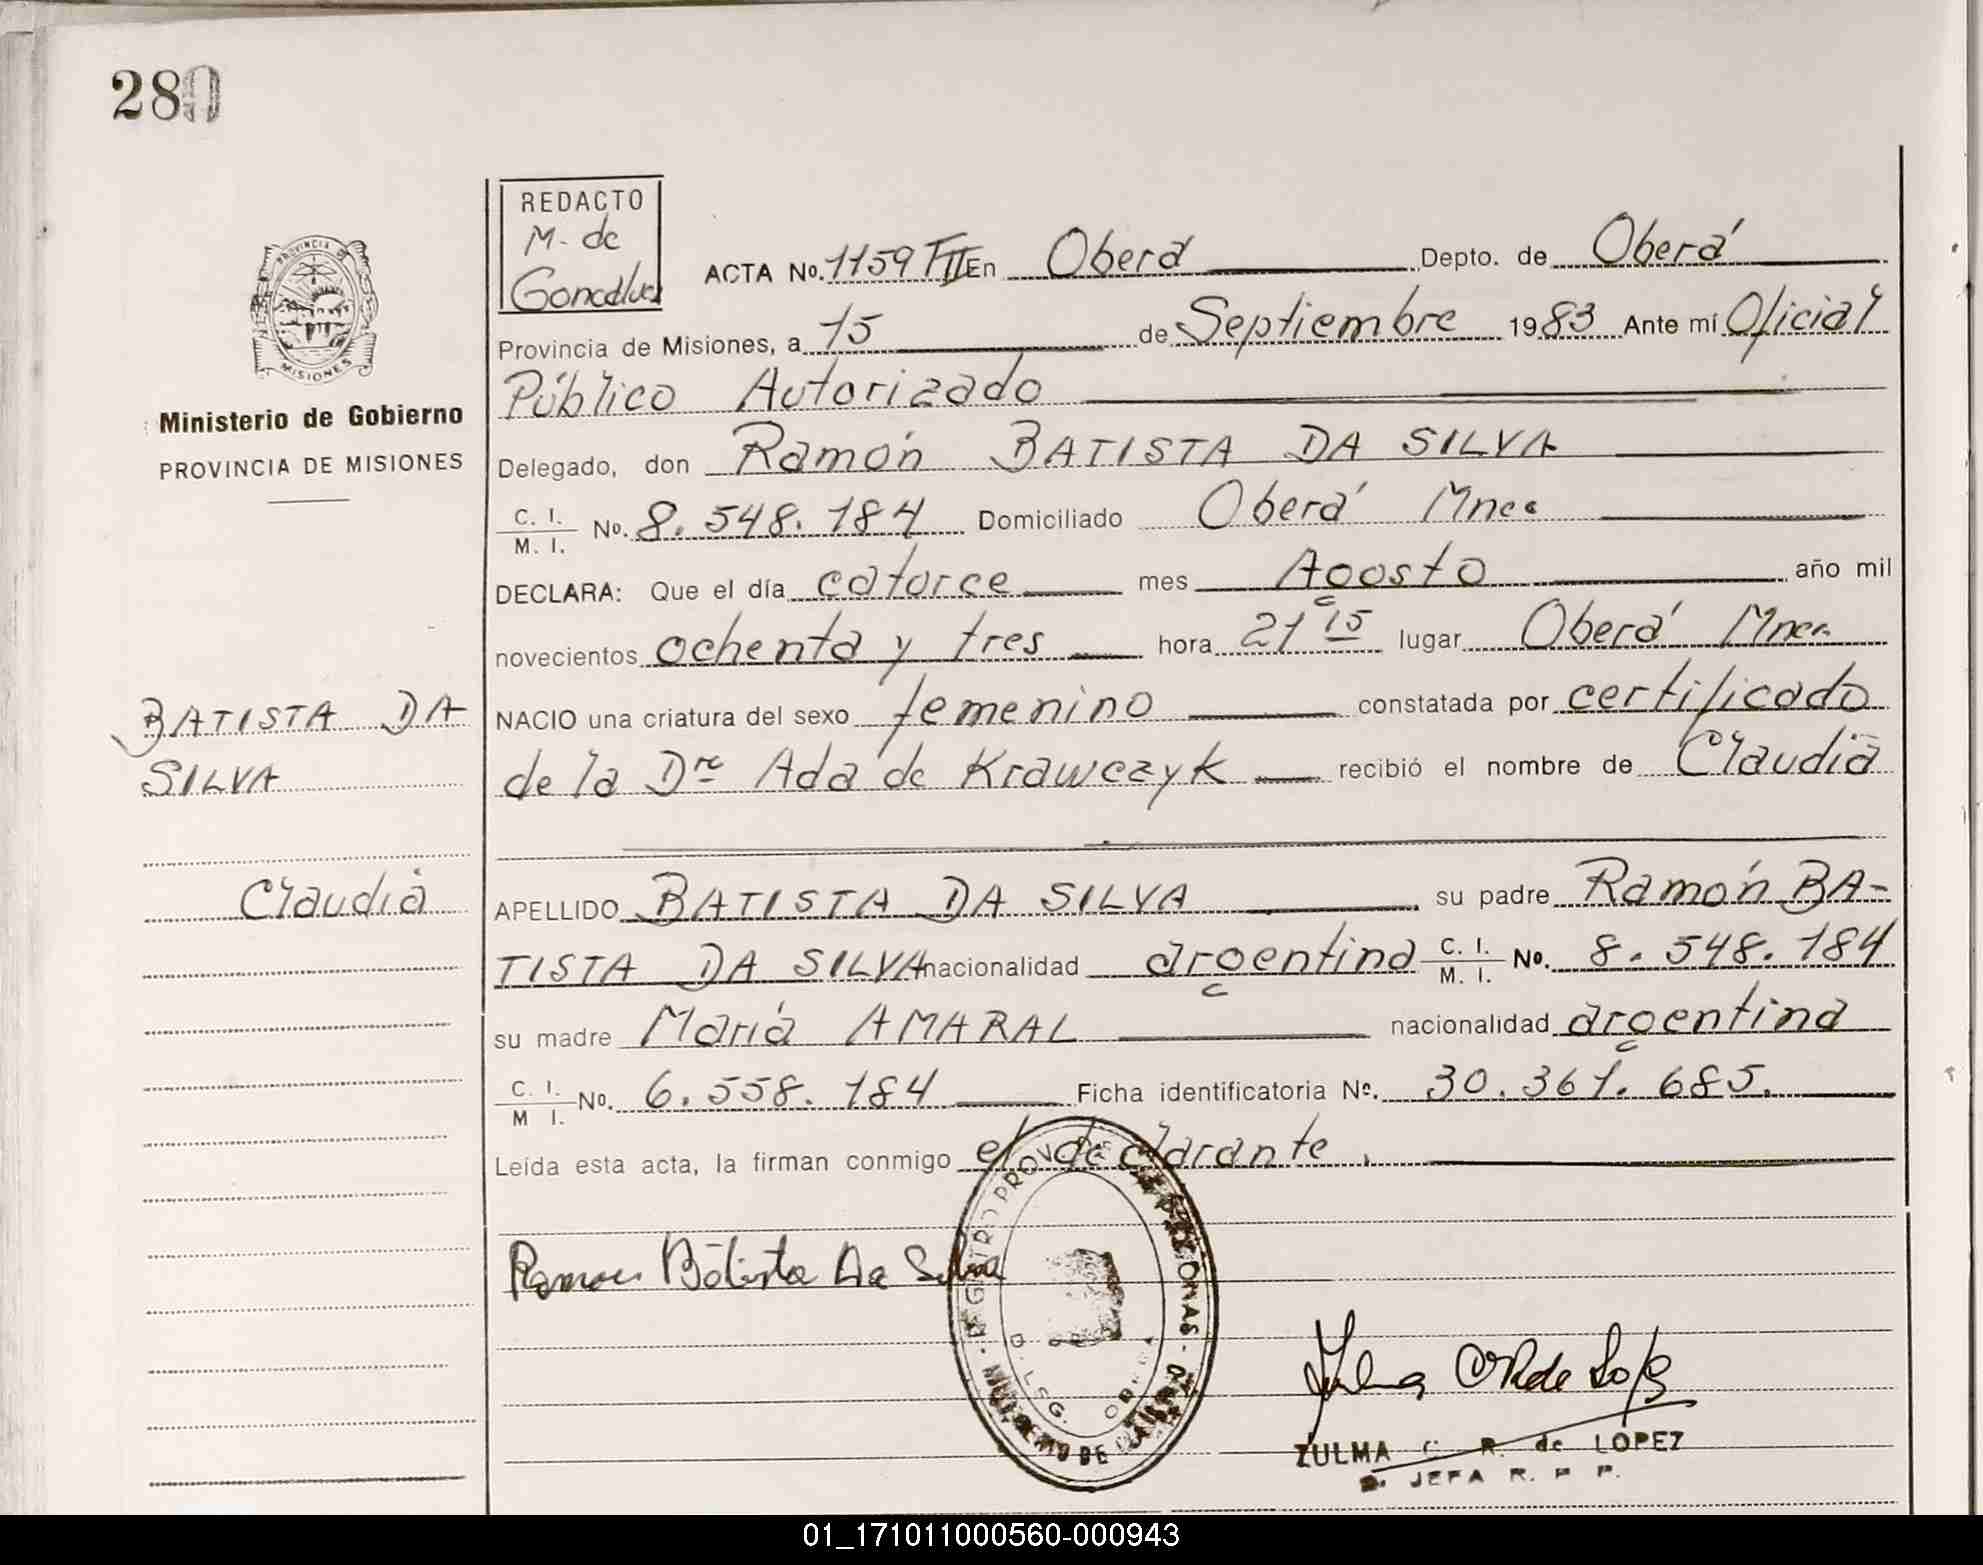 280
REDACTO
M. de
Goncalvez
PROVINCIA DE
MISIONES
Ministerio de Gobierno
PROVINCIA DE MISIONES
ACTA No. 1159 TIII En Oberá Depto. de Oberá
Provincia de Misiones, a 15 de Septiembre 1983 Ante mí Oficial
Público Autorizado
Delegado, don Ramón BATISTA DA SILVA
C. I. / M. I. No. 8.548.184 Domiciliado Oberá Mnes
DECLARA: Que el día catorce mes Agosto año mil
novecientos ochenta y tres hora 21 15 lugar Oberá Mnes
NACIO una criatura del sexo femenino constatada por certificado
de la Dra Ada de Krawczyk recibió el nombre de Claudia
BATISTA DA
SILVA
Claudia
APELLIDO BATISTA DA SILVA su padre Ramón BA-
TISTA DA SILVA nacionalidad argentina C. I. / M. I. No. 8.548.184
su madre María AMARAL nacionalidad argentina
C. I. / M I. No. 6.558.184 Ficha identificatoria No. 30.361.685.
Leída esta acta, la firman conmigo el declarante.
Ramon Batista Da Silva
REGISTRO PROV. DE LAS PERSONAS
DELEG. OBERA
ZULMA C. R. de LOPEZ
JEFA R. P. P.
01_171011000560-000943